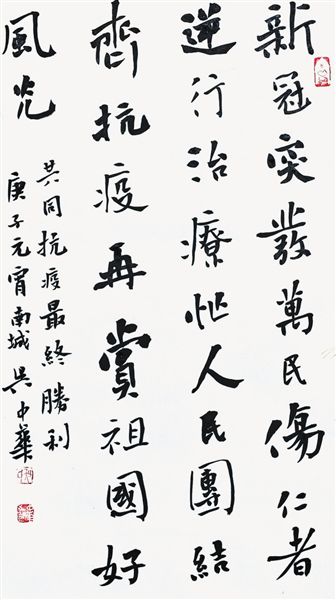 新冠突發萬民傷仁者
逆行治療忙人民團結
齊抗疫再賞祖國好
風光
共同抗疫最終勝利
庚子元宵南城吳中華